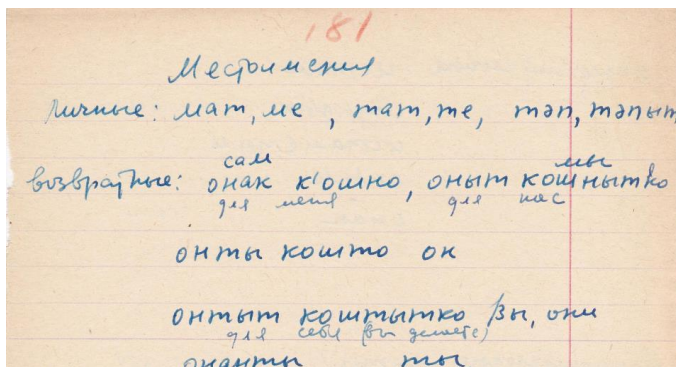 181
Местоимения
личные: мат, ме, тат, те, тəп, тəпыт
сам мы
возвратные: онак к'ошно, оныт кошнытко
для меня для нас
онты кошто он
онтыт коштытко вы, они
для себя (вы делаете)
онанты ты